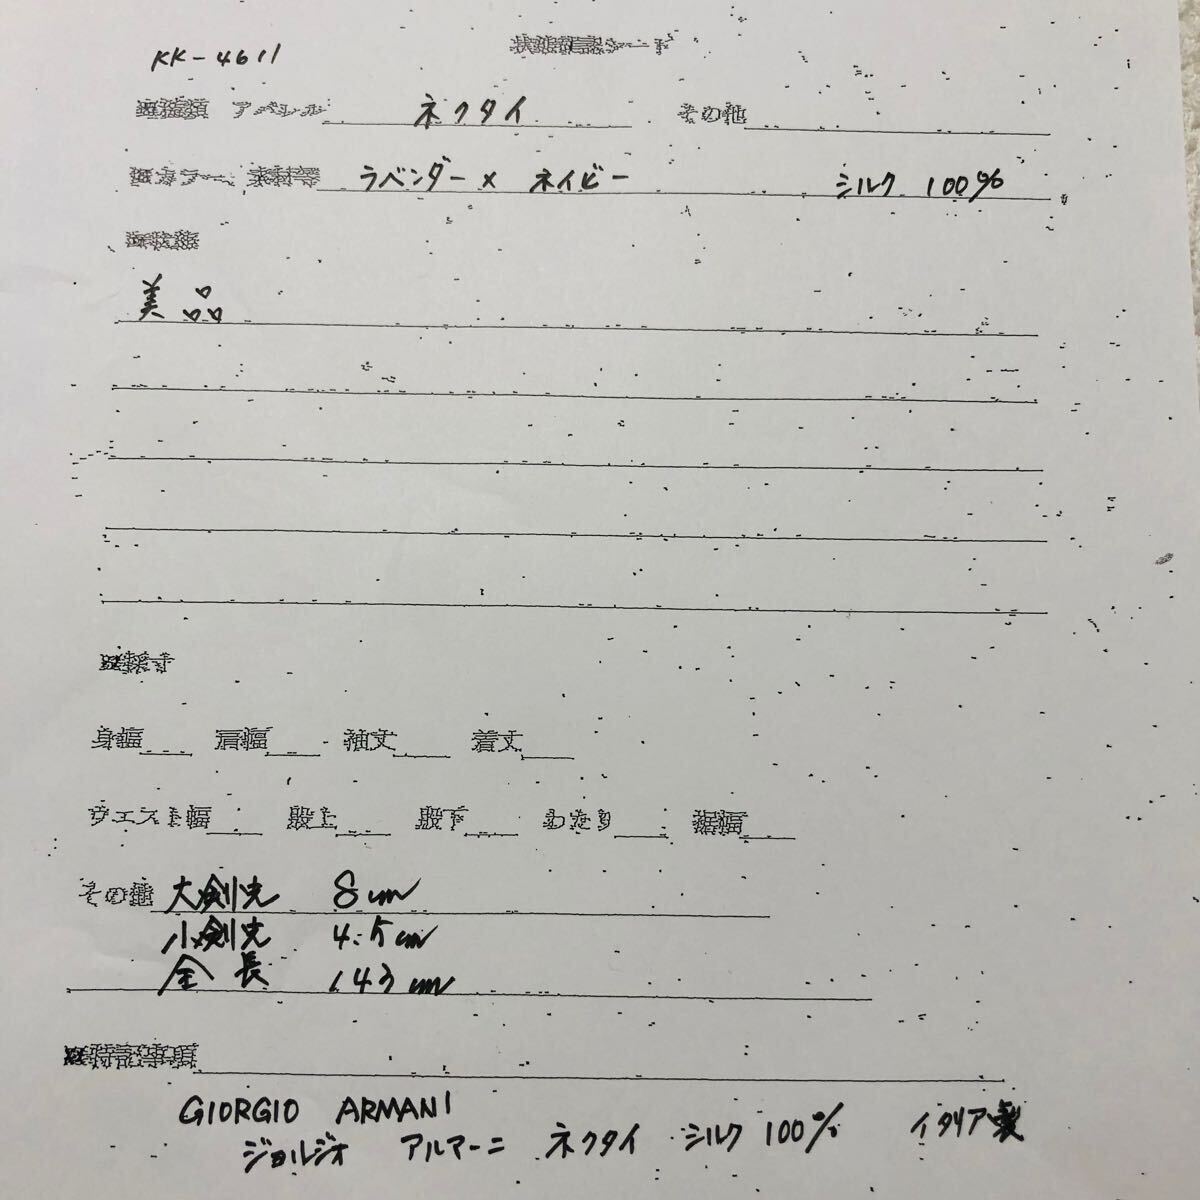 KK-4611
状態確認シート
アパレル ネクタイ その他
カラー、素材等 ラベンダー × ネイビー シルク 100%
美品
採寸
身幅 肩幅 袖丈 着丈
ウエスト幅 股上 股下 わたり 裾幅
その他 大剣先 8cm
小剣先 4.5cm
全長 143cm
特記事項
GIORGIO ARMANI
ジョルジオ アルマーニ ネクタイ シルク 100% イタリア製